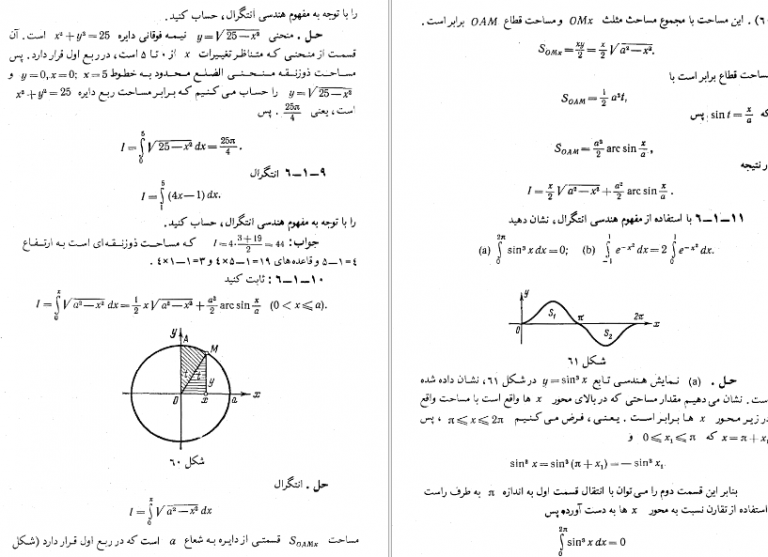 را با توجه به مفهوم هندسی انتگرال، حساب کنید.
حل. منحنی y=√25−x² نیمه فوقانی دایره x²+y²=25 است. آن
قسمت از منحنی که متناظر تغییرات x از ۰ تا ۵ است، در ربع اول قرار دارد. پس
مساحت ذوزنقه منحنی الضلع محدود به خطوط x=0; x=5، y=0 و
y=√25−x² را حساب می‌کنیم که برابر مساحت ربع دایره x²+y²=25
است، یعنی 25π/4. پس
I=∫₀⁵ √25−x² dx=25π/4.
۶−۱−۹ انتگرال
I=∫₁⁵ (4x−1) dx.
را با توجه به مفهوم هندسی انتگرال، حساب کنید.
جواب: I=4·(3+19)/2=44 که مساحت ذوزنقه‌ای است به ارتفاع
۵−۱=۴ و قاعده‌های ۴×۵−۱=۱۹ و ۴×۱−۱=۳.
۶−۱−۱۰: ثابت کنید
I=∫₀ˣ √a²−x² dx=1/2 x√a²−x²+a²/2 arc sin x/a (0<x⩽a).
y
A
M
t
t
y
O
x
a
x
شکل ۶۰
حل. انتگرال
I=∫₀ˣ √a²−x² dx
مساحت S_OAMx قسمتی از دایره به شعاع a است که در ربع اول قرار دارد (شکل
۶۰). این مساحت با مجموع مساحت مثلث OMx و مساحت قطاع OAM برابر است.
S_OMx=xy/2=x/2 √a²−x².
مساحت قطاع برابر است با
S_OAM=1/2 a²t,
که sin t=x/a. پس
S_OAM=a²/2 arc sin x/a,
در نتیجه
I=x/2 √a²−x²+a²/2 arc sin x/a.
۶−۱−۱۱ با استفاده از مفهوم هندسی انتگرال، نشان دهید
(a) ∫₀^2π sin³ x dx=0; (b) ∫₋₁¹ e^−x² dx=2 ∫₀¹ e^−x² dx.
y
S₁
π
2π
0
x
S₂
شکل ۶۱
حل. (a) نمایش هندسی تابع y=sin³ x در شکل ۶۱، نشان داده شده
است. نشان می‌دهیم مقدار مساحتی که در بالای محور x ها واقع است با مساحت واقع
در زیر محور x ها برابر است. یعنی، فرض می‌کنیم π⩽x⩽2π، پس
x=π+x₁ که 0⩽x₁⩽π و
sin³ x=sin³ (π+x₁)=−sin³ x₁.
بنابر این قسمت دوم را می‌توان با انتقال قسمت اول به اندازه π به طرف راست
استفاده از تقارن نسبت به محور x ها به دست آورد. پس
∫₀^2π sin³ x dx=0